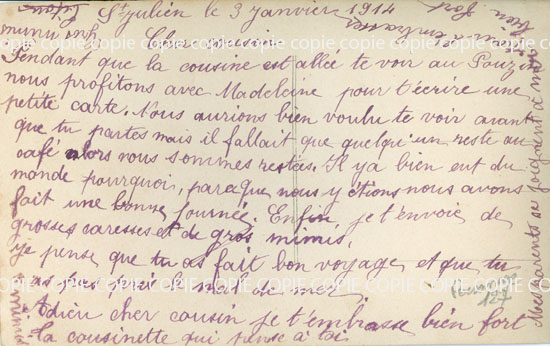 St Julien le 3 janvier 1914
Cher cousin
Pendant que la cousine est allée te voir au Pouzin
nous profitons avec Madeleine pour t'écrire une
petite carte. Nous aurions bien voulu te voir avant
que tu partes mais il fallait que quelqu'un reste au
café alors nous sommes restées. Il y a bien eut du
monde pourquoi, parceque nous y étions nous avons
fait une bonne journée. Enfin je t'envoie de
grosses caresses et de gros mimis.
Je pense que tu as fait bon voyage et que tu
as pas pris le mal de mer.
Adieu cher cousin je t'embrasse bien fort
la cousinette qui pense à toi
Mes parents se joignent à moi
bien fort
COPIE COPIE COPIE COPIE COPIE COPIE COPIE
127